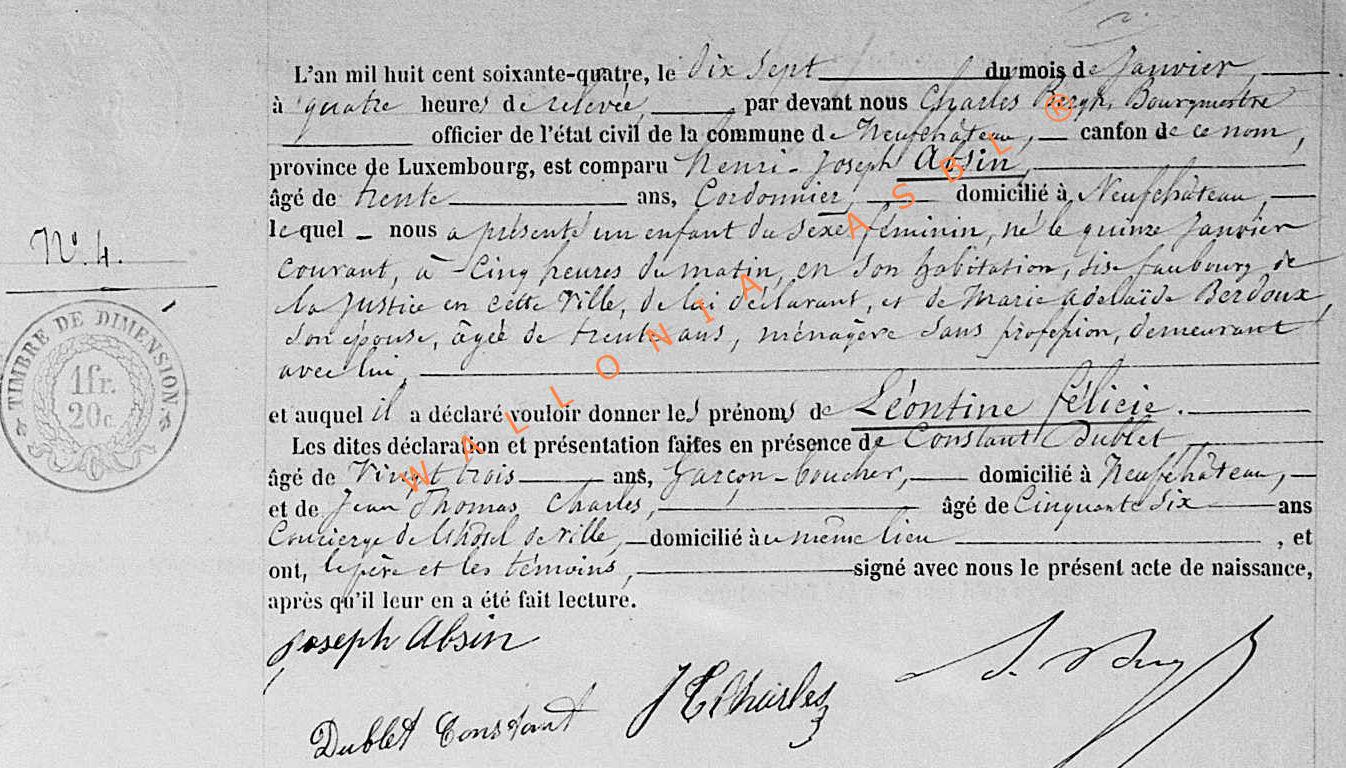 L'an mil huit cent soixante-quatre, le dix sept du mois de Janvier,
à quatre heures de relevée, par devant nous Charles Bergh, Bourgmestre
officier de l'état civil de la commune de Neufchâteau, canton de ce nom,
province de Luxembourg, est comparu Henri-Joseph Absin,
âgé de trente ans, Cordonnier, domicilié à Neufchâteau,
lequel nous a présenté un enfant du sexe féminin, né le quinze Janvier
courant, à cinq heures du matin, en son habitation, sise faubourg de
la Justice en cette Ville, de lui déclarant, et de Marie Adelaïde Berdoux,
son épouse, âgée de trente ans, ménagère sans profession, demeurant
avec lui,
et auquel il a déclaré vouloir donner les prénoms de Léontine félicie.
Les dites déclaration et présentation faites en présence de Constant Dublet
âgé de Vingt trois ans, Garçon-boucher, domicilié à Neufchâteau,
et de Jean Thomas Charles, âgé de Cinquante six ans
Concierge de l'hôtel de Ville, domicilié au même lieu , et
ont, le père et les témoins, signé avec nous le présent acte de naissance,
après qu'il leur en a été fait lecture.
N°. 4.
TIMBRE DE DIMENSION.
1fr.
20c.
Joseph Absin
J T Charles
Dublet Constant
WALLONIA ASBL ®